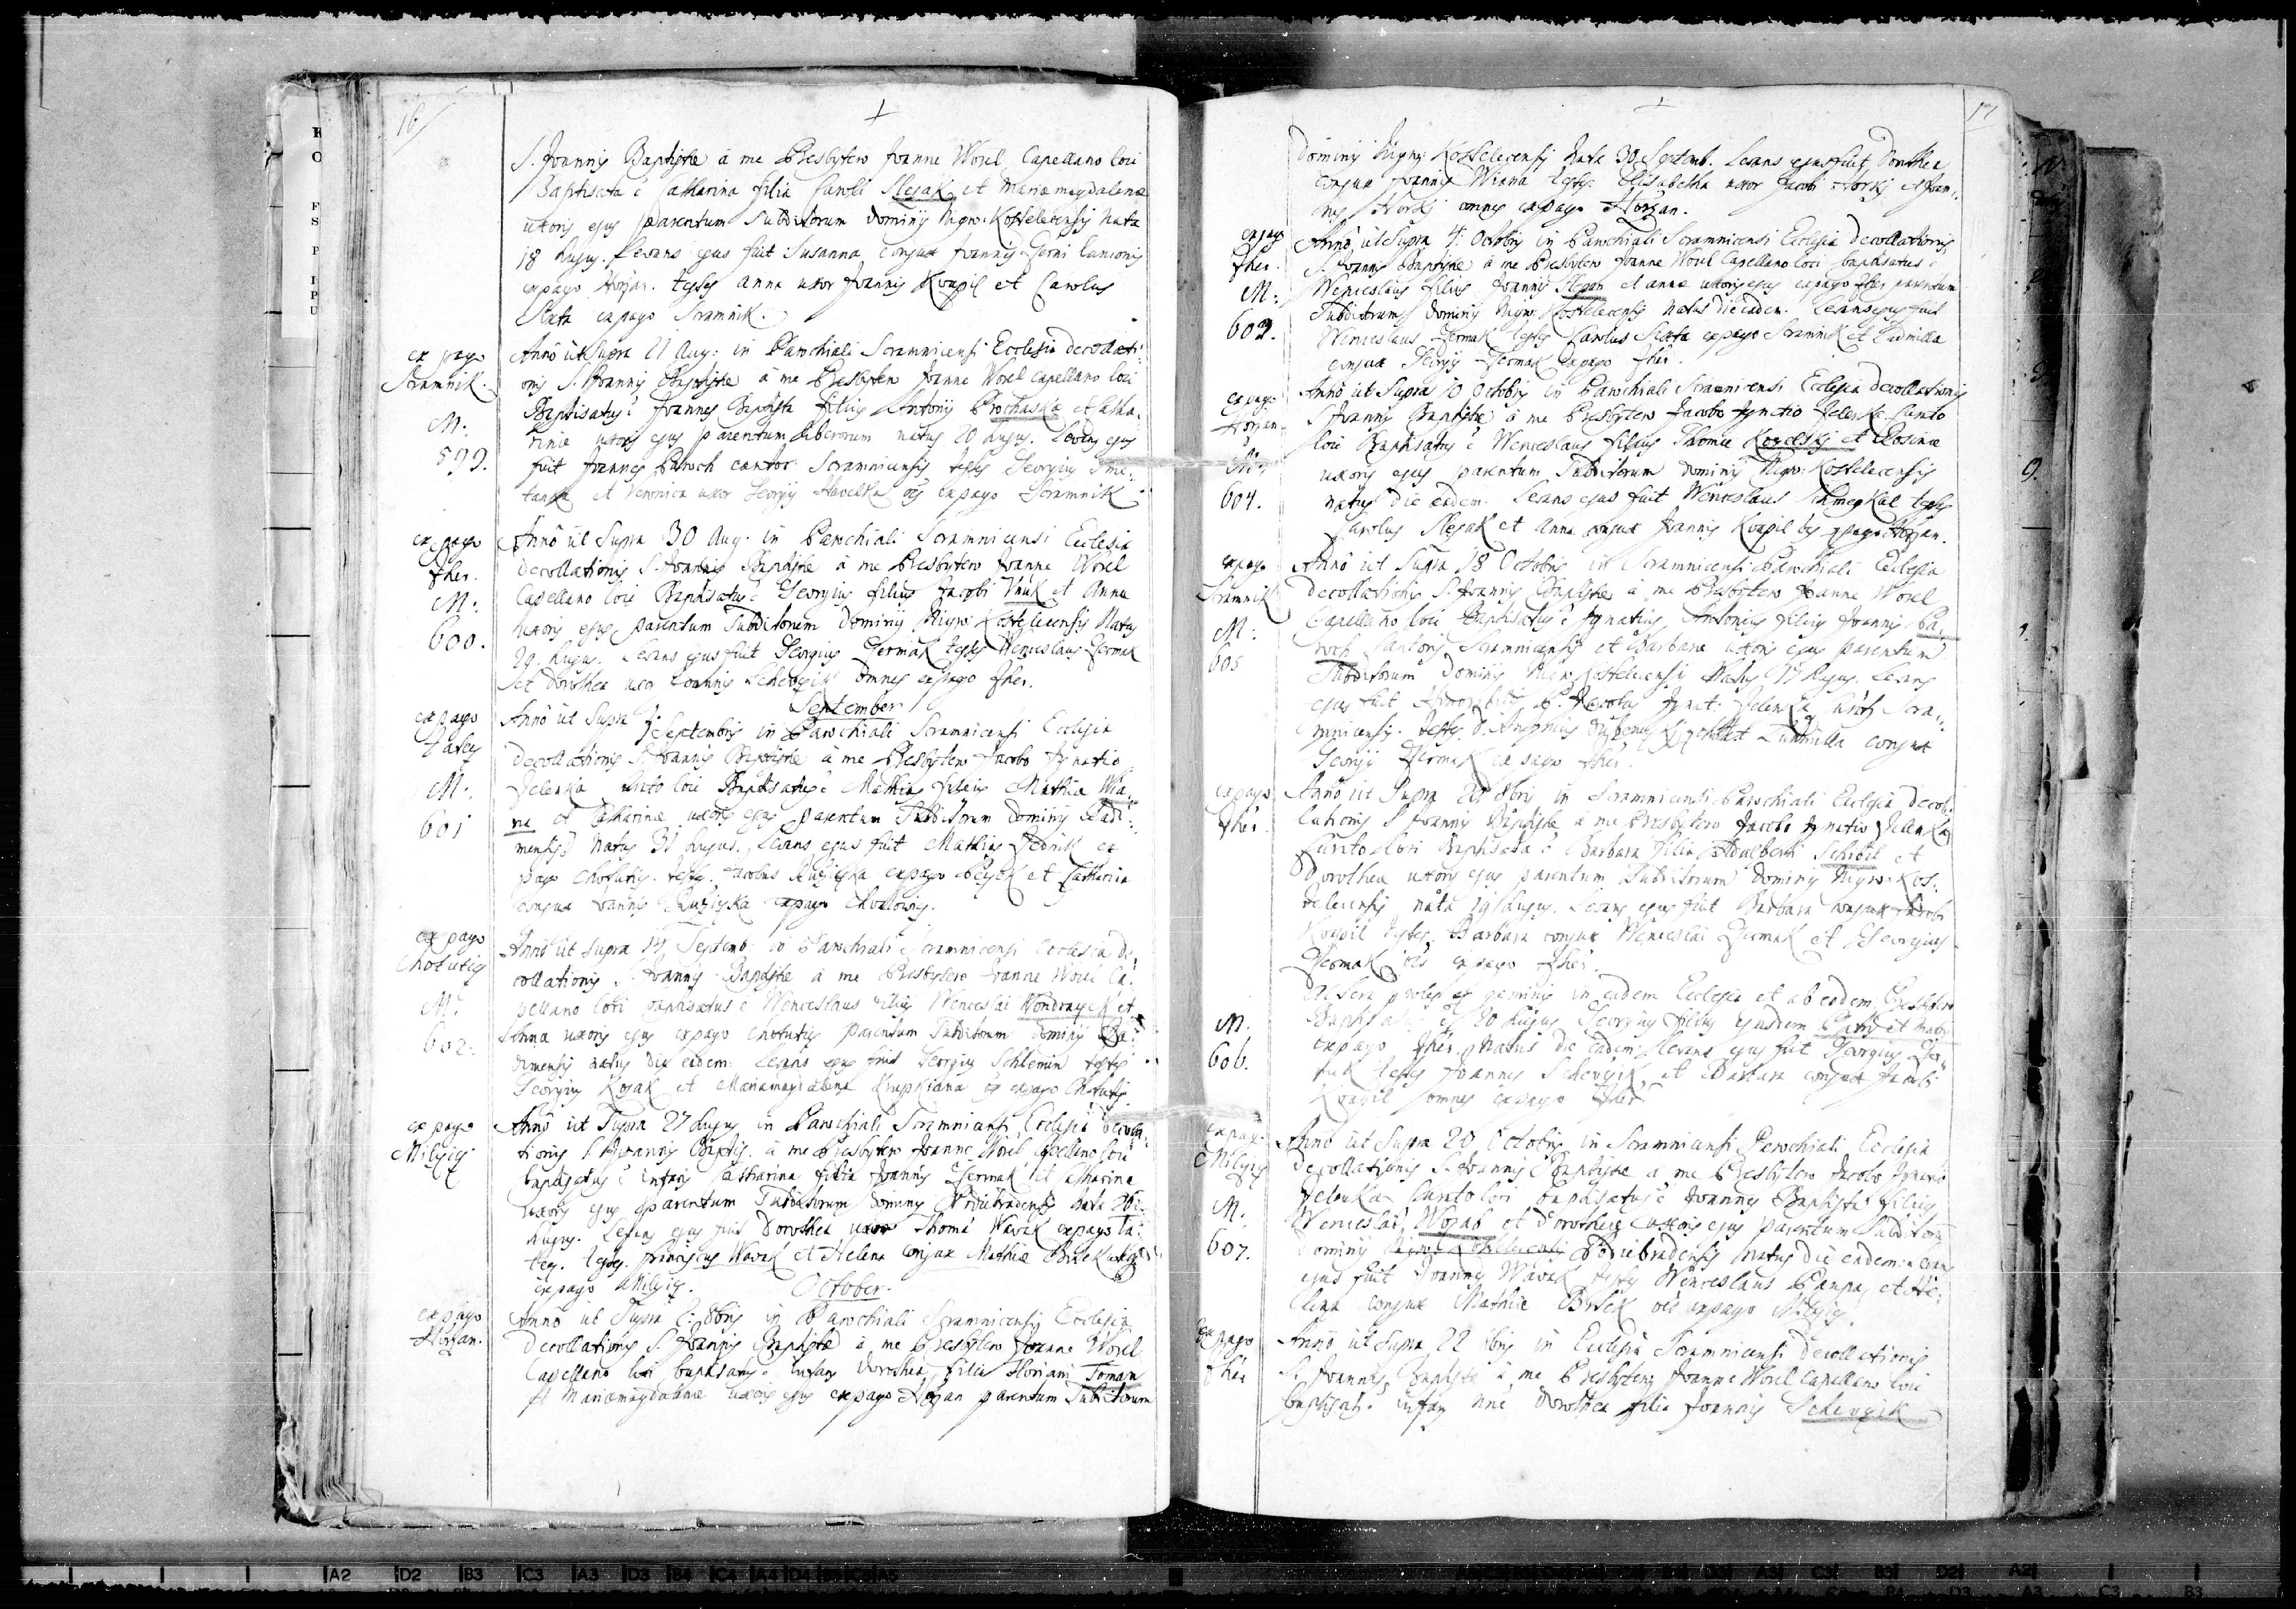 16
S. Joannis Baptistæ à me Presbytero Joanne Worel Capellano loci
Baptisata ē Catharina filia Caroli Slegak et Mariæ magdalenæ
uxoris ejus parentum Subditorum Dominij Nigro: Kostelecensis Nata
18 hujus. Levans ejus fuit Susanna conjux Joannis
ex pago Horzan. testes anna uxor Joannis Kvapil et Carolus
Sixta ex pago Scramnik.
ex pago
Scramnik.
M.
599.
Anno ut Supra 21 Aug: in Parochiali Scramnicensi Ecclesia decollati-
onis S. Joannis Baptistæ à me Presbytero Joanne Worel capellano loci
Baptisatus ē Joannes Baptista filius Antonij Prochaska et Catha-
rinæ uxoris ejus parentum liberorum natus 20 hujus. Levans ejus
fuit Joannes Paroch cantor Scramnicensis testes Georgius Sme-
tanka et Veronica uxor Georgij Havelka oēs ex pago Scramnik
ex pago
Zher.
M.
600.
Anno ut Supra 30 Aug. in Parochiali Scramnicensi Ecclesia
decollationis S. Joannis Baptistæ à me Presbytero Joanne Worel
Capellano loci Baptisatus ē Georgius filius Jacobi Vnuk et Anna
uxoris ejus parentum Subditorum Dominij Nigro Kostelecensis Natus
29. hujus. Levans ejus fuit Georgius Zermak testes Wenceslaus Zermak
et Dorothea uxor Joannis Schevczik omnes ex pago Zher.
September
ex pago
M.
601
Anno ut Supra Septembris in Parochiali Scramnicensi Ecclesia
decollationis S. Joannis Baptistæ à me Presbytero Jacobo Ignatio
Jelenka Curato loci Baptisatus ē Mathias filius Mathiæ Wia-
na et Catharinæ uxoris ejus parentum Subditorum Dominij Radi-
mensis Natus 31 hujus. Levans ejus fuit Mathias Jednik ex
pago Chotutis. testes Jacobus Ruziczka ex pago et Catharina
conjux Joannis Ruziczka ex pago
ex pago
Chotutis
M.
602.
Anno ut supra 14 Septemb. in Parochiali Scramnicensi Ecclesia De-
collationis S. Joannis Baptistæ à me Presbytero Joanne Worel Ca-
pellano loci baptisatus ē Wenceslaus filius Wenceslai Wondraczek et
Anna uxoris ejus ex pago Chotutis parentum Subditorum Dominij Ra-
dimensis natus die eadem. Levans ejus fuit Georgius testes
Georgius Kozak et Mariamagdalena oēs ex pago Chotutis.
ex pago
Milczicz
Anno ut Supra 27 hujus in Parochiali Scramnicensi Ecclesia decolla-
tionis S. Joannis Baptis. à me Presbytero Joanne Worel Capellano loci
baptisatus ē infans Catharina filia Joannis Zermak et Catharina
uxoris ejus parentum Subditorum Dominij Podiebradensis nata 26
hujus. Levans ejus fuit Dorothea uxor Thomæ Wavak ex pago Ta-
tecz. testes. Franciscus Wavak et Helena conjux Mathiæ Brzek
ex pago Milczicz.
October.
ex pago
Horzan.
Anno ut Supra 8bris in Parochiali Scramnicensis Ecclesia
Decollationis S. Joannis Baptistæ à me Presbytero Joanne Worel
Capellano loci baptisatus ē infans Dorothea filia Floriani Toman
et Mariæmagdalenæ uxoris ejus ex pago Horzan parentum Subditorum
17
Dominij Nigro: Kostelecensis Nata 30 Septemb. Levans ejus fuit Dorothea
conjux Joannis Wiana testes. Elisabetha uxor Jacobi Horskj et Joan-
nes Horskj omnes ex pago Horzan.
ex pago
Zher.
M.
603.
Anno ut Supra 4. Octobris in Parochiali Scramnicensi Ecclesia decollationis
S. Joannis Baptistæ à me Presbytero Joanne Worel Capellano loci baptisatus ē
Wenceslaus filius Joannis et annæ uxoris ejus ex pago Zher parentum
Subditorum Dominij Nigro Kostelecensis Natus die eadem. Levans ejus fuit
Wenceslaus Zermak testes Carolus Sixta ex pago Scramnik et Ludmilla
conjux Georgij Zermak ex pago Zher.
ex pago
Horzan
M.
604.
Anno ut Supra 10 Octobris in Parochiali Scramnicensi Ecclesia decollationis
S. Joannis Baptistæ à me Presbytero Jacobo Ignatio Jelenka Curato
loci Baptisatus ē Wenceslaus filius Thomæ Kozelskj et Rosinæ
uxoris ejus parentum Subditorum Dominij Nigro: Kostelecensis
natus die eadem. Levans ejus fuit Wenceslaus testes
Carolus Slegak et Anna conjux Joannis Kvapil oēs ex pago Horzan.
ex pago
Scramnik
M.
605
Anno ut Supra 18 Octobris in Scramnicensi Parochiali Ecclesia
decollationis S. Joannis Baptistæ à me Presbytero Joanne Worel
Capellano loci Baptisatus ē Ignatius Antonius filius Joannis Pa-
roch Cantoris Scramnicensis et Barbaræ uxoris ejus parentum
Subditorum Dominij Nigro Kostelecensis Natus 17 hujus. Levans
ejus fuit P. Jacobus Ignat: Jelenka Scra-
mnicensis. testes. D. et Ludmilla conjux
Georgij Zermak ex pago Zher.
ex pago
Zher.
Anno ut Supra 20 8bris in Scramnicensi Parochiali Ecclesia decol-
lationis S. Joannis Baptistæ à me Presbytero Jacobo Ignatio Jelenka
Curato loci Baptisata ē Barbara filia Adalberti et
Dorothea uxoris ejus parentum Subditorum Dominij Nigro: Kos-
telecensis nata 19 hujus. Levans ejus fuit Barbara conjux Jacobi
Kvapil testes. Barbara conjux Wenceslai Zermak et Georgius
Zermak oēs ex pago Zher.
M.
606.
Altera proles ex geminis in eadem Ecclesia et ab eodem Presbytero
Baptisatus est 20 hujus Georgius filius ejusdem Patris et Matris
ex pago Zher. Natus die eadem. Levans ejus fuit Georgius Zer-
mak testes Joannes Schevczik et Barbara conjux Jacobi
Kvapil omnes ex pago Zher
ex pago
Milczicz
M.
607.
Anno ut Supra 20 Octobris in Scramnicensi Parochiali Ecclesia
Decollationis S. Joannis Baptistæ à me Presbytero Jacobo Ignatio
Jelenka Curato loci baptisatus ē Joannes Baptista filius
Wenceslai Wozab et Dorotheæ uxoris ejus parentum Subditorum
Dominij Podiebradensis Natus die eadem. Levans
ejus fuit Joannes Wavak testes Wenceslaus et He-
lena conjux Mathiæ Brzek oēs ex pago Milczicz.
ex pago
Zher
Anno ut Supra 22 8bris in Ecclesia Scramnicensi decollationis
S. Joannis Baptistæ à me Presbytero Joanne Worel Capellano loci
baptisat. infans nōe Dorothea filia Joannis Schevczik